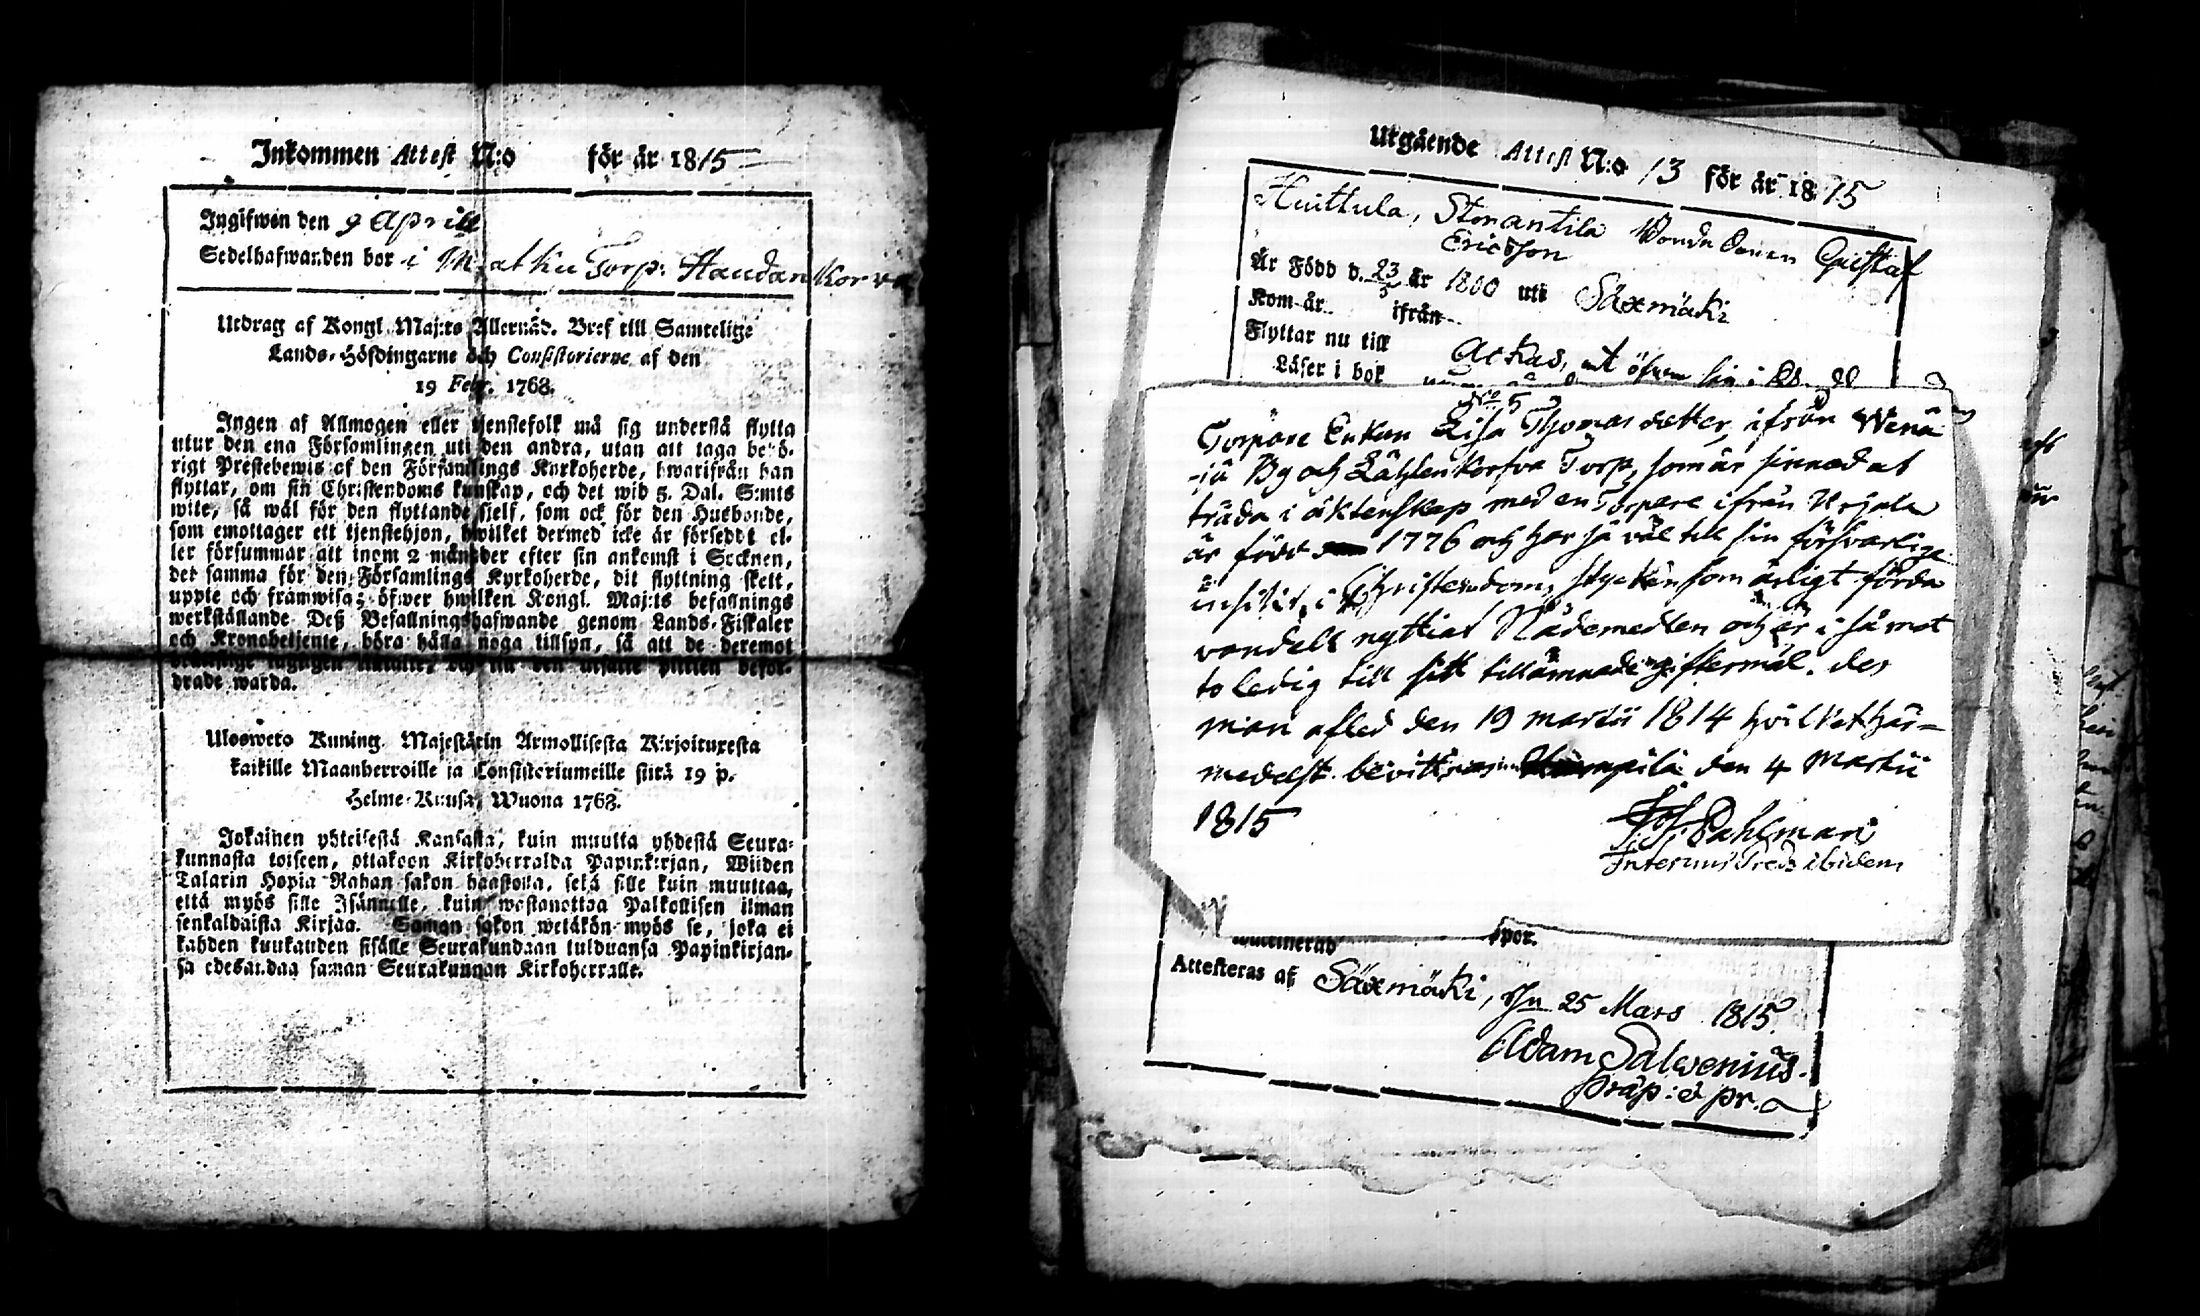 Inkommen Attest N:o för år 1815
Ingifwen den 9 April
Sedelhafwanden bor i Matku Torp: Haudankorva
Utdrag af Kongl. Maj:ts Allernåd. Bref till Samtelige
Lands-Höfdingarne och Consistorierne af den
19 Febr. 1768.
Ingen af Allmogen eller tjenstefolk må sig understå flytta
utur den ena Församlingen uti den andra, utan att taga behö-
rigt Prestebewis af den Församlings Kyrkoherde, hwarifrån han
flyttar, om sin Christendoms kunskap, och det wid 5. Dal. S:mts
wite, så wäl för den flyttande sjelf, som ock för den Husbonde,
som emottager ett tjenstehjon, hwilket dermed icke är försedt el-
ler försummar att inom 2 månader efter sin ankomst i Socknen,
det samma för den Församlings Kyrkoherde, dit flyttning skett,
uppte och framwisa; öfwer hwilken Kongl. Maj:ts befallnings
werkställande Deß Befallningshafwande genom Lands-Fiskaler
och Kronobetjente, böra hålla noga tillsyn, så att de deremot
drade warda.
Ulosweto Kuning. Majestätin Armollisesta Kirjoituxesta
kaikille Maanherroille ja Consistoriumeille siitä 19 p.
Helme-Kuusa, Wuona 1768.
Jokainen yhteisestä Kansasta, kuin muutta yhdestä Seura-
kunnasta toiseen, ottakoon Kirkoherralda Papinkirjan, Wiiden
Talarin Hopia Rahan sakon haastolla, sekä sille kuin muuttaa,
että myös sille Isännälle, kuin wastanottaa Palkollisen ilman
senkaldaista Kirjaa. Saman sakon wetäkön myös se, joka ei
kahden kuukauden sisälle Seurakundaan tulduansa Papinkirjan-
sa edesandaa saman Seurakunnan Kirkoherralle.
Utgående Attest N:o 13 för år 1815
Huittula, Stomantila Bonde Sonen Gustaf
Ericsson
Är Född d. 23/5 år 1800 uti Säxmäki
Kom år ifrån
Flyttar nu till Ackas,
Läser i bok
No 5
Torpare Enkan Lisa Thomasdotter, ifrån Wenä
-jä By och Lähtenkorfva Torp, som är sinnad at
träda i äktenskap med en Torpare ifrån Urjala
är född 1776 och har så väl till sin försvarlige
insikt i Christendoms stycken som ärligt förda
vandell nyttiat Nådemedlen och är i så mot
to ledig till sitt tillämnade giftermål. des
man afled den 19 martii 1814 hvilket här-
medelst bevittnas den 4 Martii
1815
Jos. Dahlman
Interims Pred: ibidem
spor.
Attesteras af Säxmäki, d. 25 Mars 1815.
Adam Salwenius.
præp: & p.